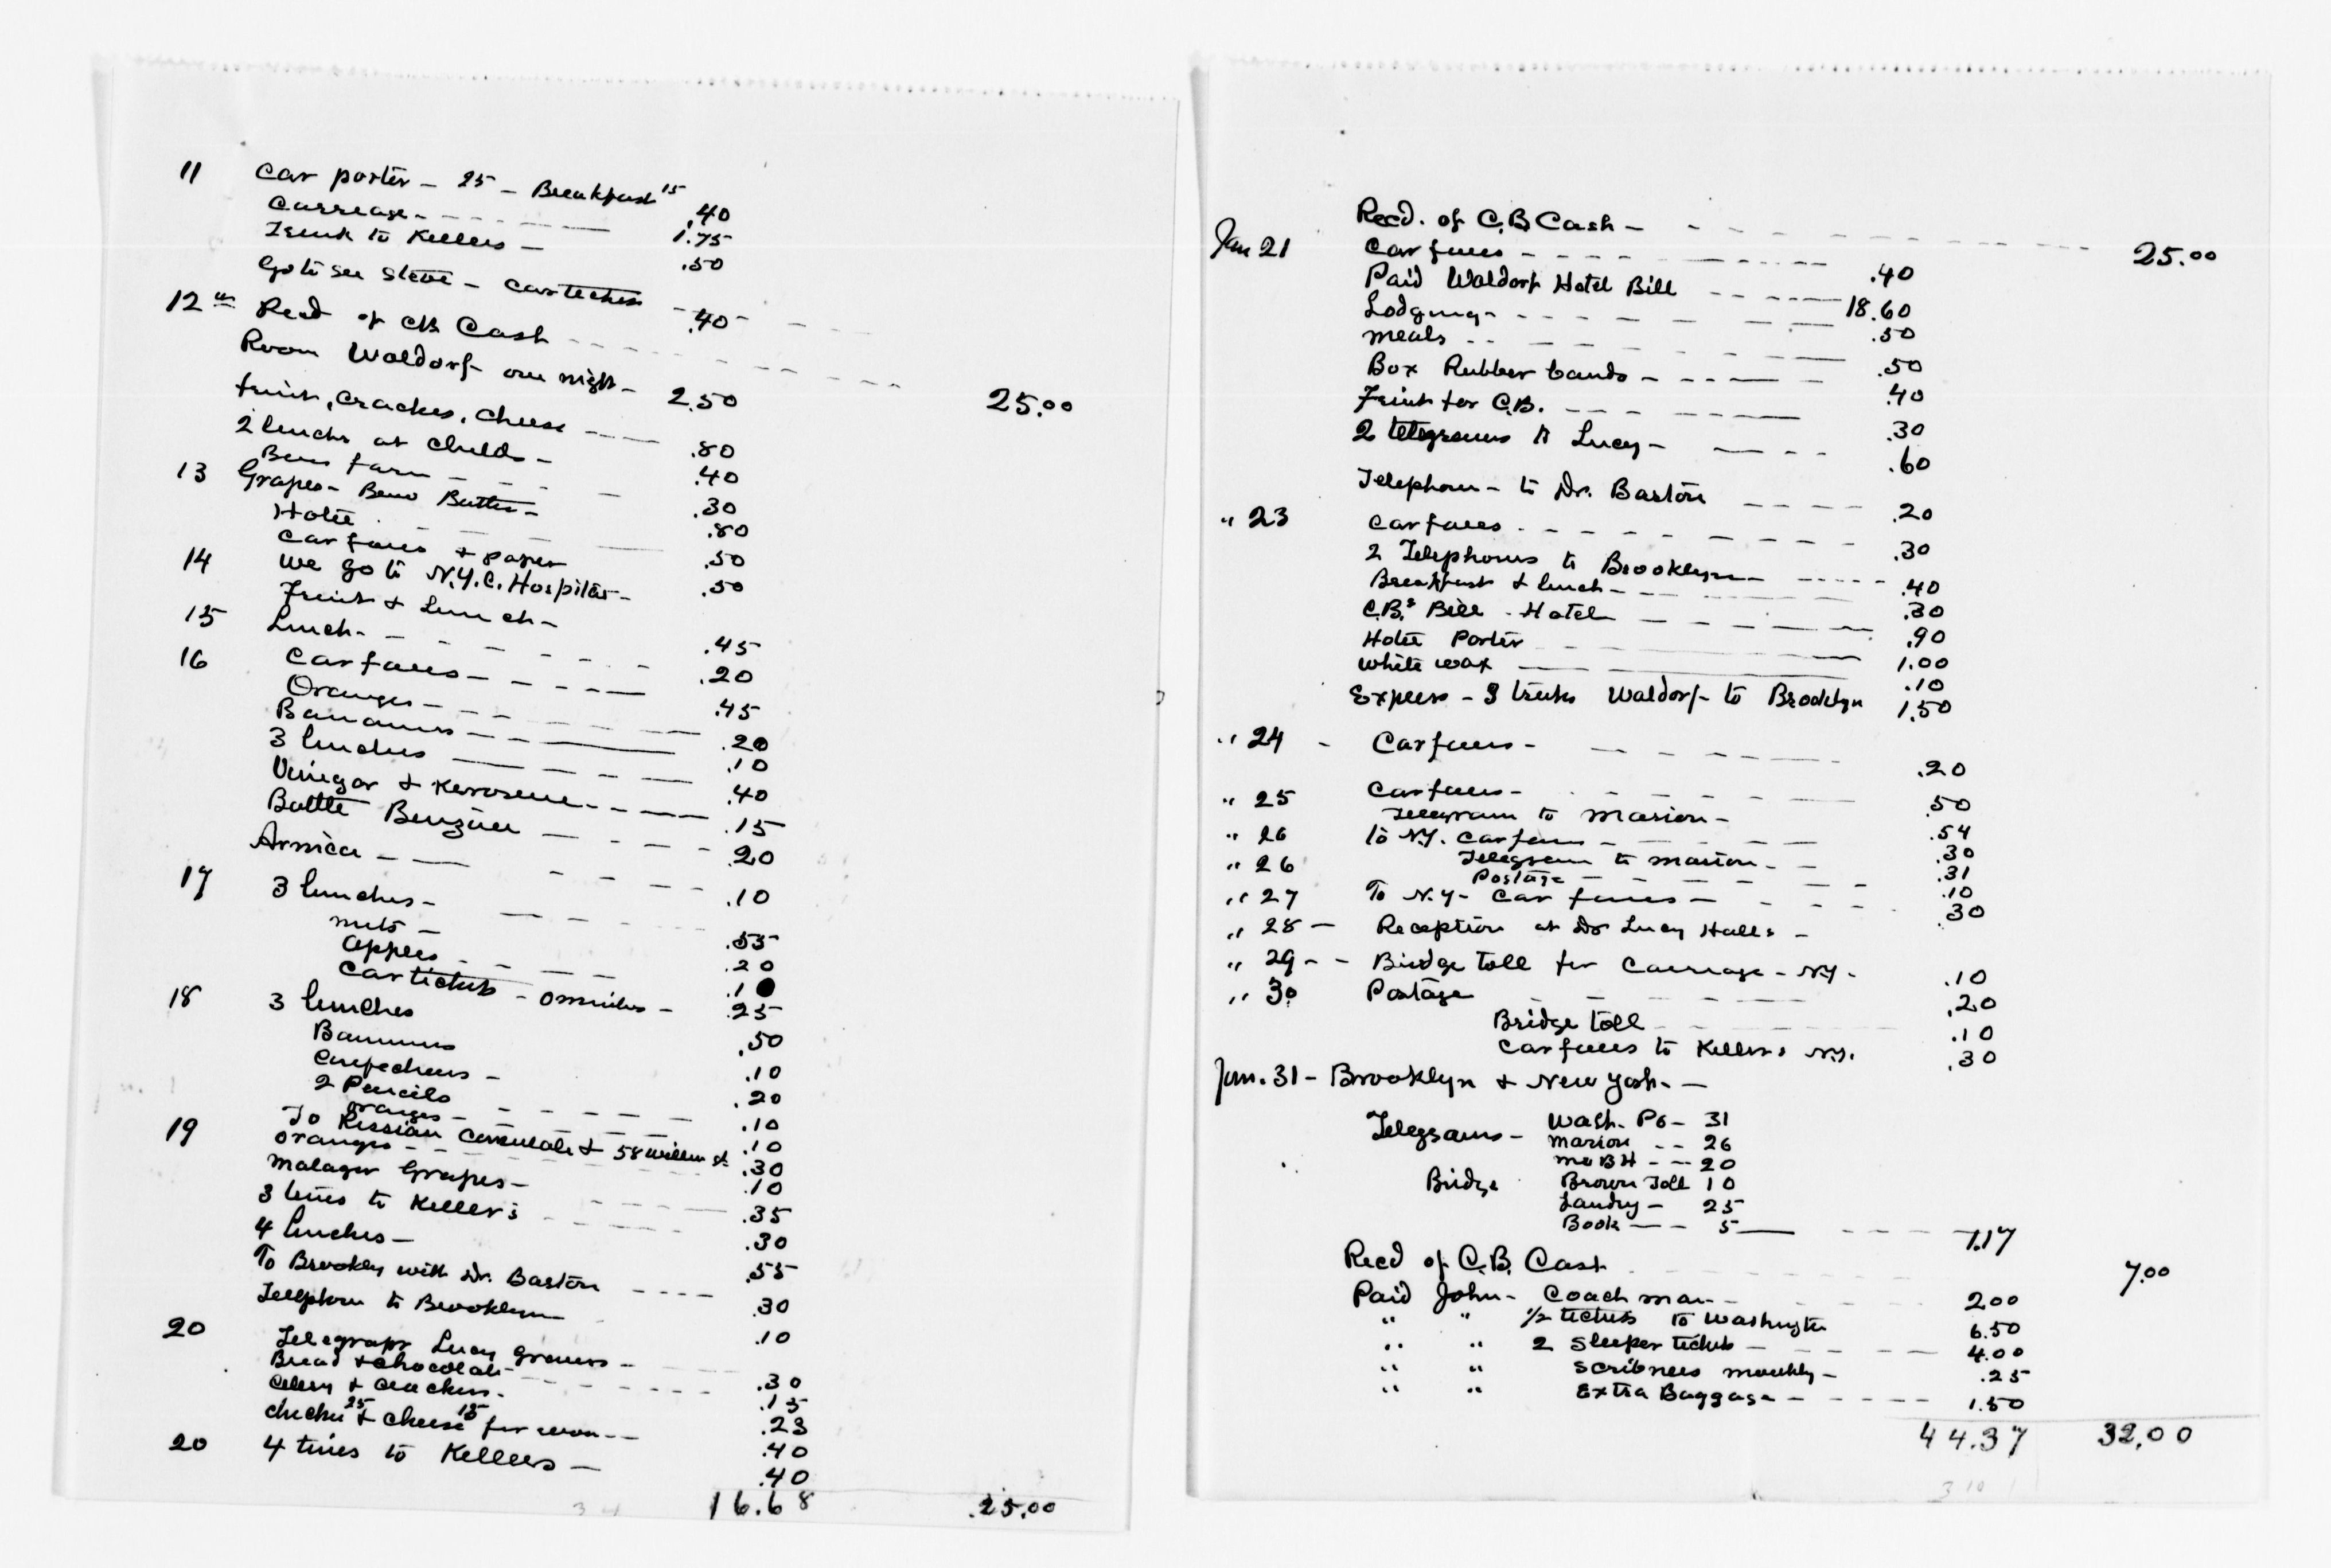 11 Car porter - 25 - Breakfast 15 .40
Carriage - 1.75
Trunk to Kellers - .50
Go to see Steve - car tickets .40
12th Recd of CB Cash 25.00
Room Waldorf one night - 2.50
fruit, crackers, cheese .80
2 lunches at Childs - .40
Bus fare .30
13 Grapes - Butter - .80
Hotel .50
Car fares & paper .50
14 We go to N.Y.C. Hospital -
Fruit & Lunch - .45
15 Lunch - .20
16 Car fares - .45
Oranges - .20
Bananas - .10
3 lunches .40
Vinegar & Kerosene .15
Bottle Benzine .20
Arnica - .10
17 3 lunches - .55
nuts - .20
apples .10
Car tickets - omnibus - .25
18 3 lunches .50
Bananas .10
.20
2 Pencils .10
oranges - .10
19 To Russian Consulate & 58 William St .30
Oranges - .10
Malager Grapes - .35
3 times to Keller's .30
4 lunches - .55
To Brooklyn with Dr. Barton .30
Telephone to Brooklyn .10
20 Telegraph Lucy Graves - .30
Bread & chocolate .15
Celery & crackers - .23
chicken 25 & cheese 15 for .40
20 4 times to Kellers - .40
16.68 .25.00
Recd. of C.B. Cash - 25.00
Jan 21 Car fares - .40
Paid Waldorf Hotel Bill 18.60
Lodging - .50
meals .50
Box Rubber bands - .40
Fruit for C.B. .30
2 telegrams to Lucy - .60
Telephone - to Dr. Barton .20
" 23 Car fares .30
2 Telephones to Brooklyn .40
Breakfast & lunch - .30
C.B.s Bill - Hotel .90
Hotel Porter 1.00
White wax .10
Express - 3 trunks Waldorf - to Brooklyn 1.50
" 24 - Car fares - .20
" 25 Car fares - .50
Telegram to Marion - .54
" 26 to N.Y. Car fares - .30
" 26 Telegram to Marion - .31
Postage - .10
" 27 To N.Y. - Car fares - .30
" 28 - Reception at Dr Lucy Halls -
" 29 - - Bridge toll for Carriage - N.Y. - .10
" 30 Postage .20
Bridge toll .10
Car fares to Kellers N.Y. .30
Jan. 31 - Brooklyn & New York -
Telegrams - Wash. Po - 31
Marion - - 26
BH - - 20
Bridge Brown Toll 10
Laundry - 25
Book - - 5 - 1.17
Recd of C.B. Cash 7.00
Paid John - Coachman - 2.00
" " 1/2 tickets to Washington 6.50
" " 2 Sleeper tickets - 4.00
" " Scribners monthly - .25
" " Extra Baggage - 1.50
44.37 32.00